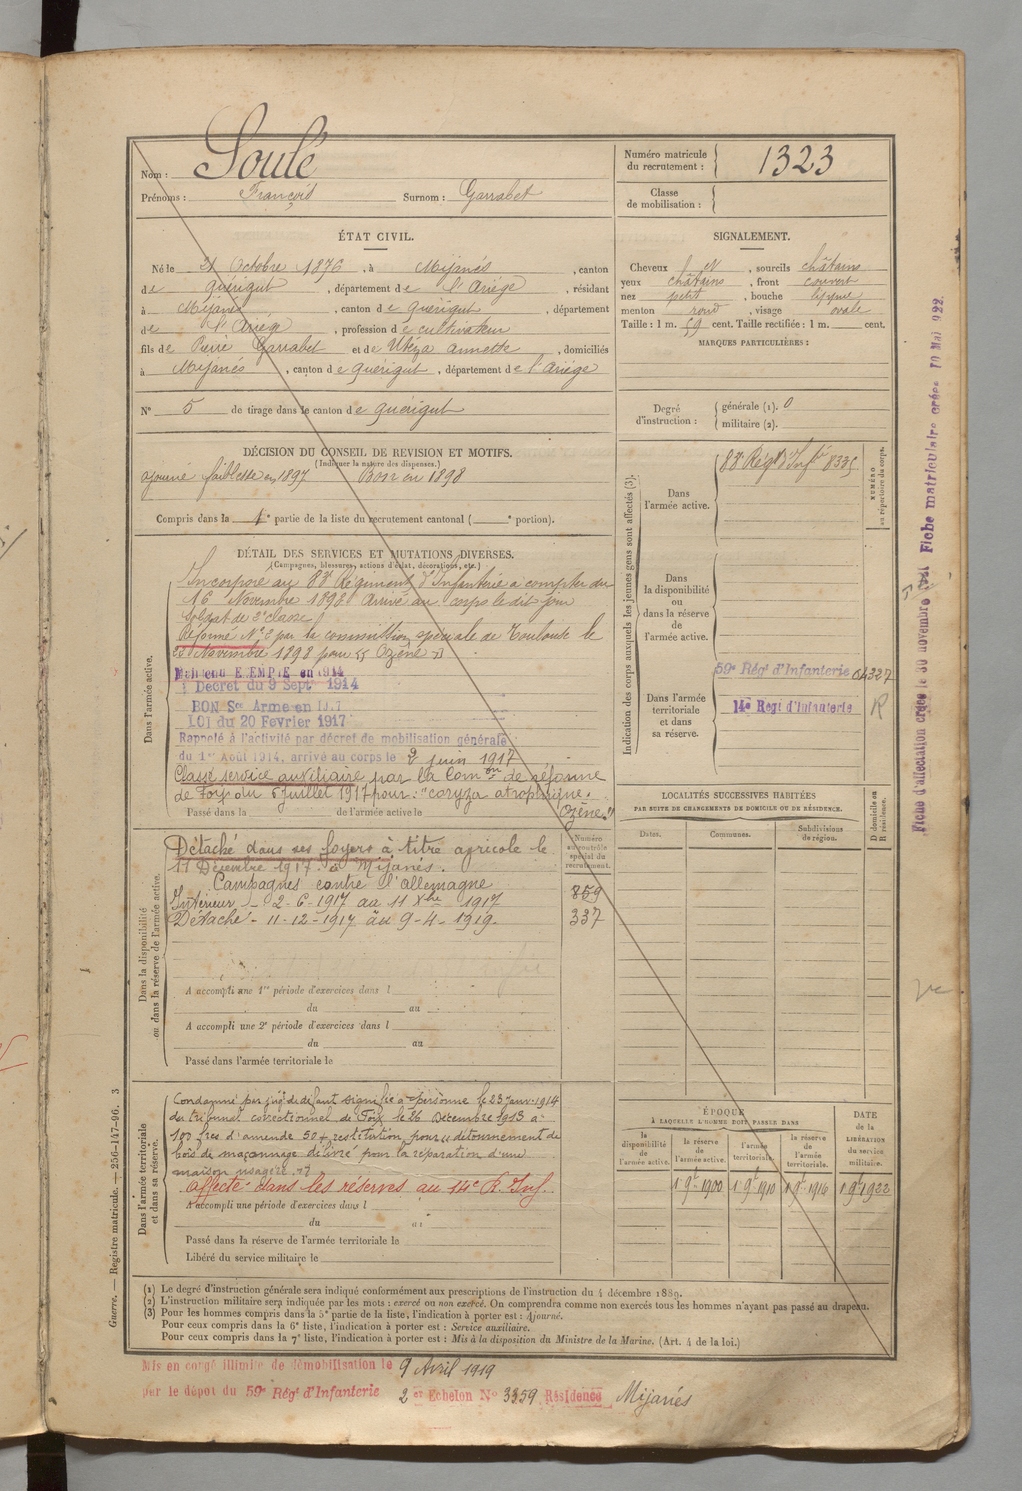 Nom : Soulé
Prénoms : François Surnom : Garrabet
Numéro matricule du recrutement : 1323
Classe de mobilisation :
ÉTAT CIVIL.
Né le 21 Octobre 1876, à Mijanés, canton
de Quérigut, département de l'Ariége, résidant
à Mijanés, canton de Quérigut, département
de l'Ariége, profession de cultivateur
fils de Pierre Garrabet et de Utéza Annette, domiciliés
à Mijanés, canton de Quérigut, département de l'Ariége
N° 5 de tirage dans le canton de Quérigut
SIGNALEMENT.
Cheveux et N, sourcils châtains
yeux châtains, front couvert
nez petit, bouche moyenne
menton rond, visage ovale
Taille : 1 m. 59 cent. Taille rectifiée : 1 m. cent.
MARQUES PARTICULIÈRES :
Degré d'instruction : générale (1). 0
militaire (2).
DÉCISION DU CONSEIL DE REVISION ET MOTIFS.
(Indiquer la nature des dispenses.)
Ajourné faiblesse en 1897 Bon en 1898
Compris dans la 1e partie de la liste du recrutement cantonal ( e portion).
DÉTAIL DES SERVICES ET MUTATIONS DIVERSES.
(Campagnes, blessures, actions d'éclat, décorations, etc.)
Dans l'armée active.
Incorporé au 83e Régiment d'Infanterie à compter du
16 Novembre 1898 Arrivé au corps le dit jour
Soldat de 2e classe
Réformé N° 2 par la commission spéciale de Toulouse le
Novembre 1898 pour « Ozène »
Maintenu EXEMPTÉ en 1914
Décret du 9 Sept 1914
BON Sce Armé en
LOI du 20 Fevrier 1917
Rappelé à l'activité par décret de mobilisation générale
du 1er Août 1914, arrivé au corps le 2 juin 1917
Classé service auxiliaire par la Comon de réforme
de Foix du 6 Juillet 1917 pour : "coryza atrophique.
Ozène"
Passé dans la de l'armée active le
Indication des corps auxquels les jeunes gens sont affectés (3).
Dans l'armée active.
83e Régt d'Infie 8335
NUMÉRO au répertoire du corps.
Dans la disponibilité ou dans la réserve de l'armée active.
Dans l'armée territoriale et dans sa réserve.
59e Régt d'Infanterie 04327
14e Regt d'Infanterie R
Dans la disponibilité ou dans la réserve de l'armée active.
Détaché dans ses foyers à titre agricole le
11 Décembre 1917 à Mijanés.
Campagnes contre l'allemagne
Intérieur - 2-6-1917 au 11 Xbre 1917
Détaché - 11-12-1917 au 9-4-1919
Numéro au contrôle spécial du recrutement.
859
337
A accompli une 1re période d'exercices dans l
du au
A accompli une 2e période d'exercices dans l
du au
Passé dans l'armée territoriale le
LOCALITÉS SUCCESSIVES HABITÉES
PAR SUITE DE CHANGEMENTS DE DOMICILE OU DE RÉSIDENCE.
Dates. Communes. Subdivisions de région. D domicile ou R résidence.
Dans l'armée territoriale et dans sa réserve.
Condamné par jugt de défaut signifié à personne le 23 Janv. 1914
du tribunal correctionnel de Foix le 26 Décembre 1913 à
100 frcs d'amende 50 + restitution pour « détournement de
bois de maçonnage délivré pour la réparation d'une
maison usagère »
Affecté dans les réserves au 14e R. Inf.
A accompli une période d'exercices dans l
du au
Passé dans la réserve de l'armée territoriale le
Libéré du service militaire le
ÉPOQUE
À LAQUELLE L'HOMME DOIT PASSER DANS
la disponibilité de l'armée active. la réserve de l'armée active. l'armée territoriale. la réserve de l'armée territoriale.
DATE de la LIBÉRATION du service militaire.
1 9bre 1900 1 9bre 1910 1 9bre 1916 1 9bre 1922
(1) Le degré d'instruction générale sera indiqué conformément aux prescriptions de l'instruction du 4 décembre 1889.
(2) L'instruction militaire sera indiquée par les mots : exercé ou non exercé. On comprendra comme non exercés tous les hommes n'ayant pas passé au drapeau.
(3) Pour les hommes compris dans la 5e partie de la liste, l'indication à porter est : Ajourné.
Pour ceux compris dans la 6e liste, l'indication à porter est : Service auxiliaire.
Pour ceux compris dans la 7e liste, l'indication à porter est : Mis à la disposition du Ministre de la Marine. (Art. 4 de la loi.)
Mis en congé illimité de démobilisation le 9 Avril 1919
par le dépot du 59e Régt d'Infanterie 2 er Echelon N° 3359 Résidence Mijanés
Guerre. — Registre matricule. — 256-147-96. 3
Fiche d'affectation créée le 30 novembre 1921 Fiche matriculaire créée 10 Mai 1922.